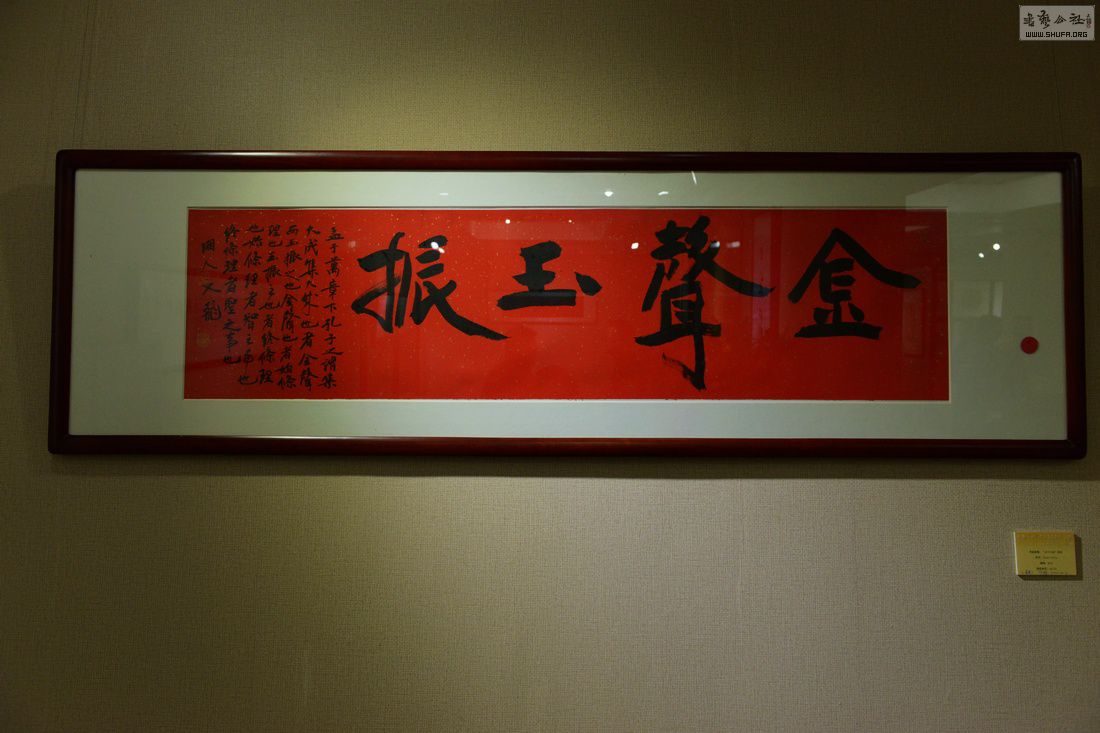 金聲玉振
孟子萬章下孔子之謂集
大成集大成也者金聲
而玉振之也金聲也者始條
理也玉振之也者終條理
也始條理者智之事也
終條理者聖之事也
书艺公社
WWW.SHUFA.ORG